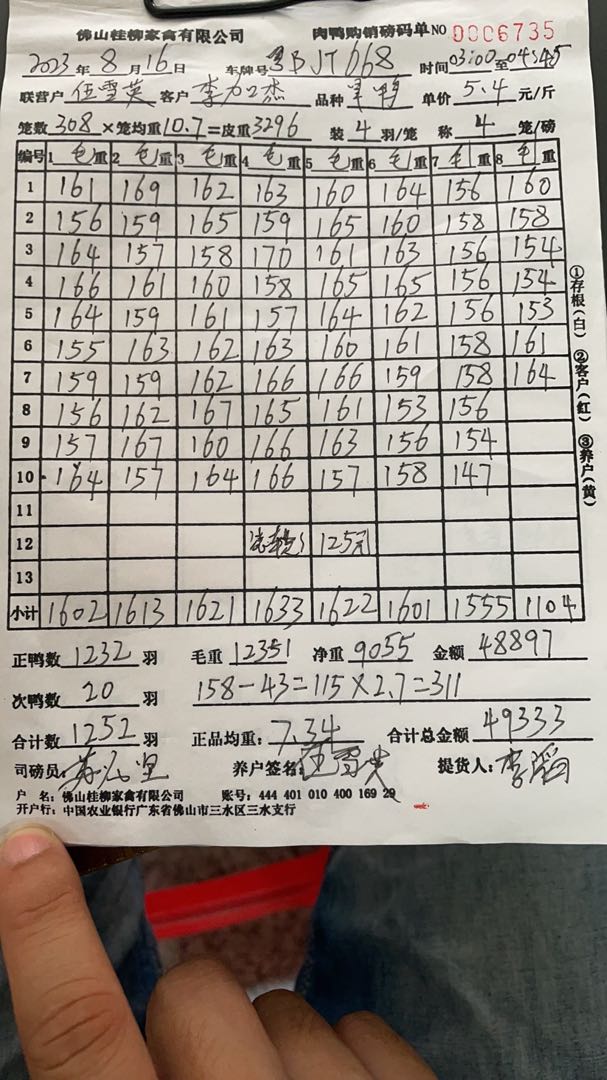 佛山桂柳家禽有限公司 肉鸭购销磅码单 NO 0006735
2023年8月16日 车牌号 粤BJT668 时间03:00至04:45
联营户 伍雪英 客户 李 杰 品种 鸭 单价 5.4 元/斤
笼数 308 ×笼均重 10.7 =皮重 3296 装 4 羽/笼 称 4 笼/磅
编号 1 毛重 2 毛重 3 毛重 4 毛重 5 毛重 6 毛重 7 毛重 8 毛重
1 161 169 162 163 160 164 156 160
2 156 159 165 159 165 160 158 158
3 164 157 158 170 161 163 156 154
4 166 161 160 158 165 165 156 154
5 164 159 161 157 164 162 156 153
6 155 163 162 163 160 161 158 161
7 159 159 162 166 166 159 158 164
8 156 162 167 165 161 153 156
9 157 167 160 166 163 156 154
10 164 157 164 166 157 158 147
11
12 125元
13
小计 1602 1613 1621 1633 1622 1601 1555 1104
正鸭数 1232 羽 毛重 12351 净重 9055 金额 48897
次鸭数 20 羽 158-43=115×2.7=311
合计数 1252 羽 正品均重: 7.34 合计总金额 49333
司磅员: 养户签名: 伍雪英 提货人: 李
户 名: 佛山桂柳家禽有限公司 账号: 444 401 010 400 169 29
开户行: 中国农业银行广东省佛山市三水区三水支行
①存根(白) ②客户(红) ③养户(黄)